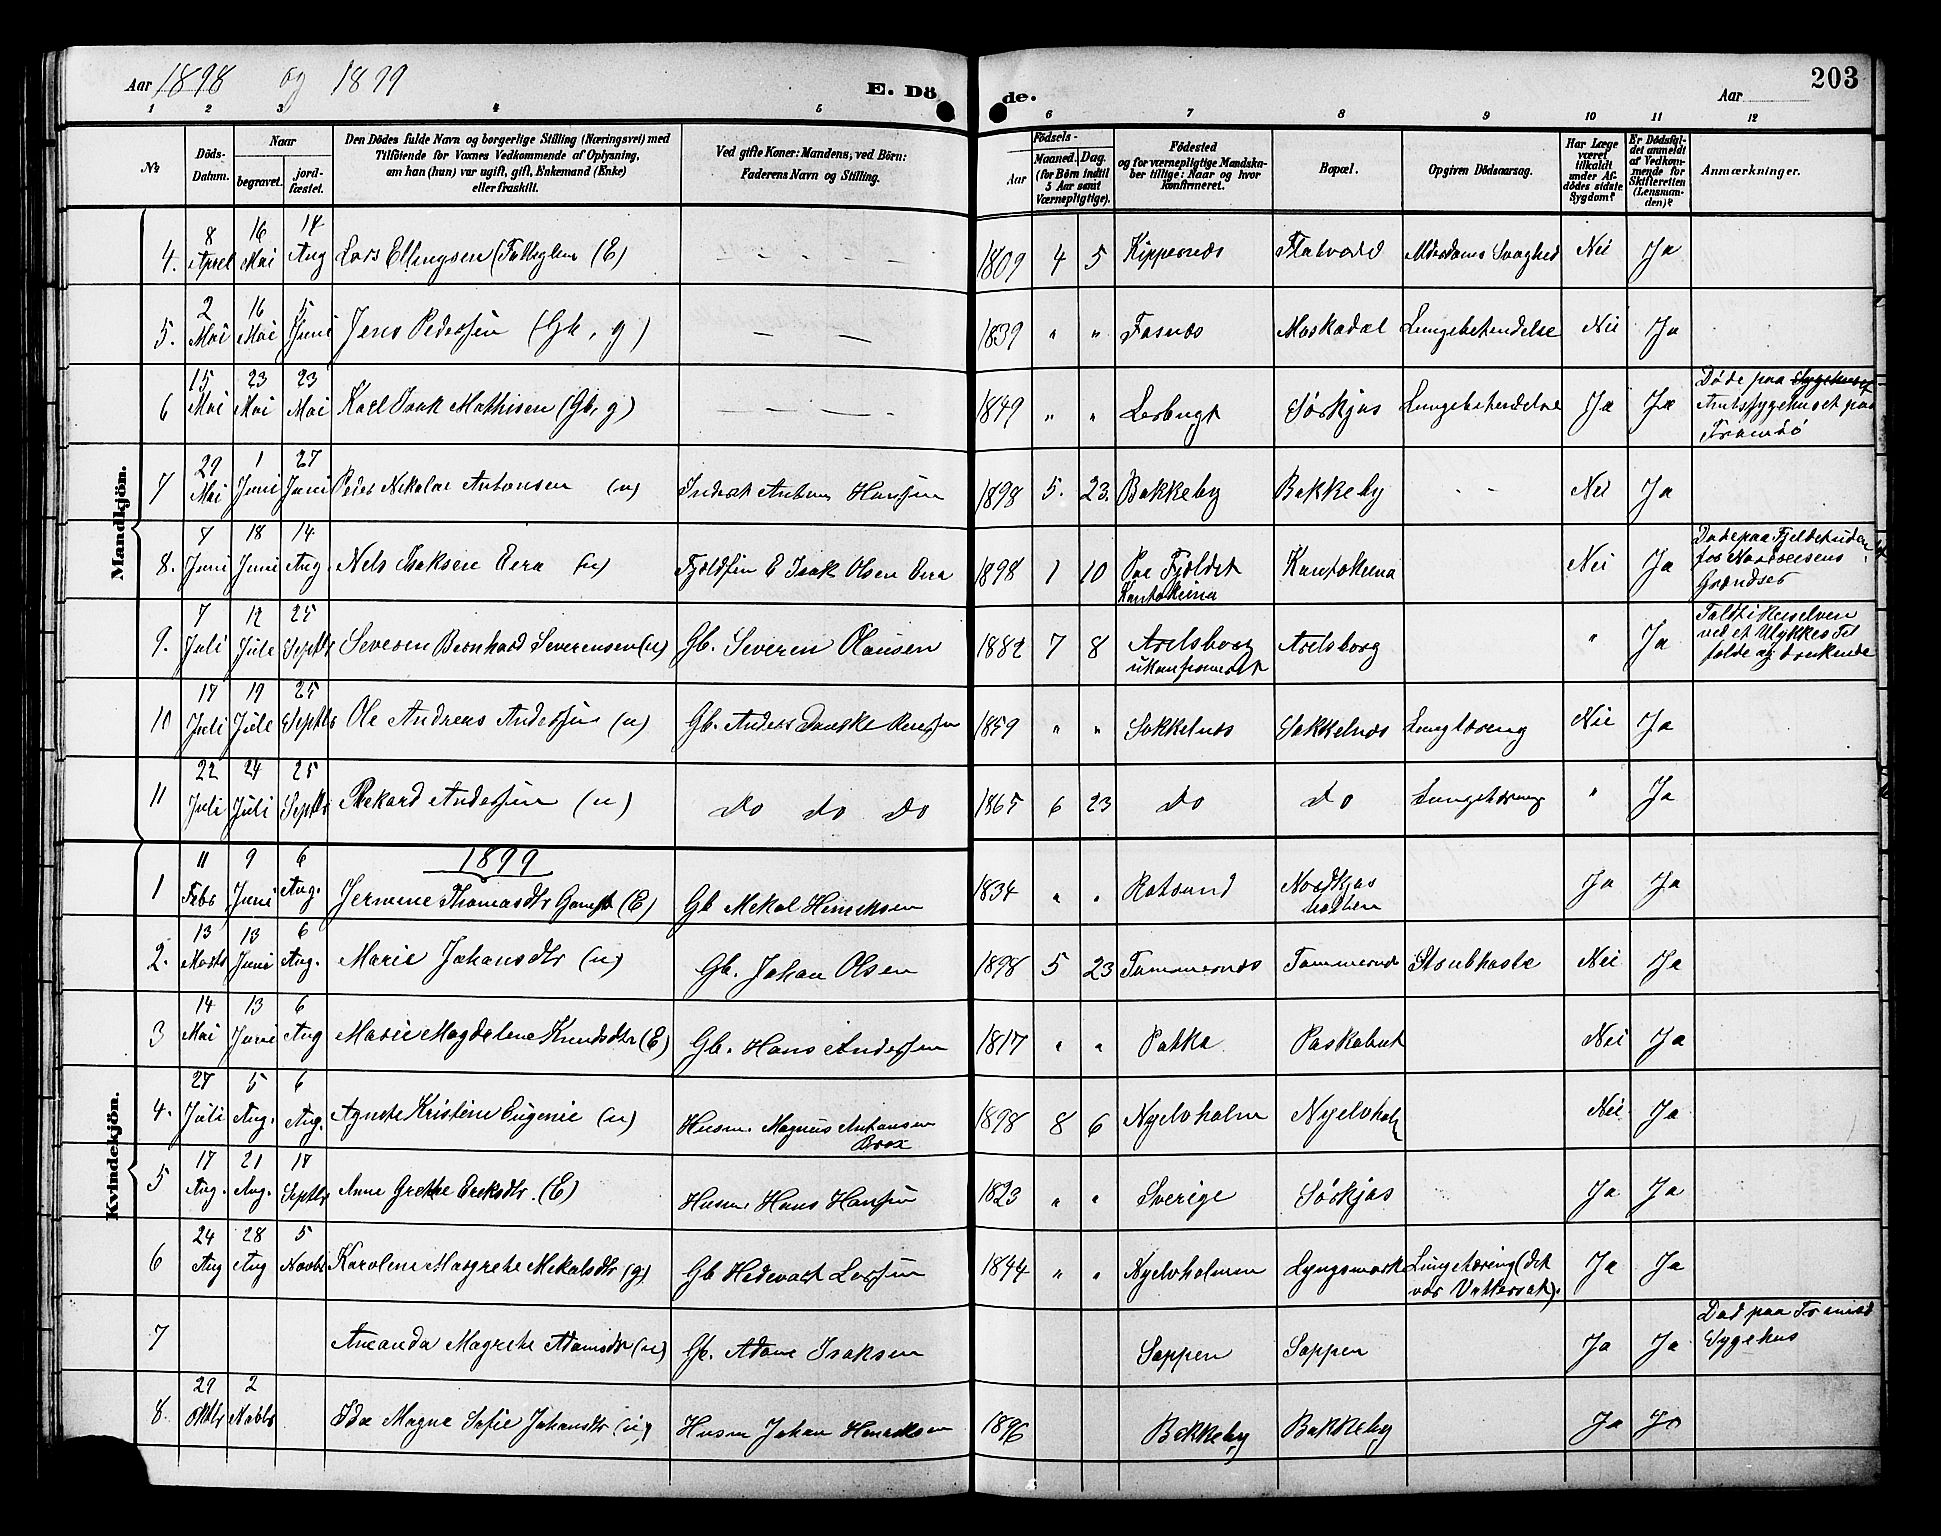 Aar 1898 og 1899
E. Döde.
203
Aar
1 2 3 4 5 6 7 8 9 10 11 12
№
Döds-Datum.
Naar
begravet.
jordfæstet.
Den Dödes fulde Navn og borgerlige Stilling (Næringsvei) med Tilföiende for Voxnes Vedkommende af Oplysning, om han (hun) var ugift, gift, Enkemand (Enke) eller fraskilt.
Ved gifte Koner: Mandens; ved Börn: Faderens Navn og Stilling.
Födsels-
Aar
Maaned. Dag.
(for Börn indtil 5 Aar samt Værnepligtige).
Födested og for værnepligtige Mandskaber tillige: Naar og hvor konfirmeret.
Bopæl.
Opgiven Dödsaarsag.
Har Læge været tilkaldt under Afdödes sidste Sygdom?
Er Dödsfaldet anmeldt af Vedkommende for Skifteretten (Lensmanden)?
Anmærkninger.
Mandkjön.
4. 8 April 16 Mai 14 Aug Lars Ellingsen (E) 1809 4 5 Kippernæs Flatvold Alderdoms Svaghed Nei Ja
5. 2 Mai 16 Mai 5 Juni Jens Pederssen (Gb, g) — — 1839 " " Fosnæs Maskadal Lungebetendelse Nei Ja
6 15 Mai 23 Mai 23 Mai Karl Isak Mathisen (Gb, g) — — 1849 " " Lerbugt Sörkjos Lungebetendelse Ja Ja Döde paa Sygehuset Amtssygehuset paa Tromsö
7 29 Mai 1 Juni 27 Juni Peder Nikolai Antonsen (u) Inderst Anton Hanssen 1898 5. 23. Bakkeby Bakkeby - - Nei Ja
8. 7 Juni 18 Juni 14 Aug Nels Isaksen Eira (u) Fjeldfin E Isak Olsen Eira 1898 1 10 Paa Fjeldet Kautokeino Kautokeino Nei Ja Döde paa Fjeldet uden for Grændser
9. 7 Juli 12 Juli 25 Septbr Severin Bernhard Severinsen (u) Gb. Severin Olausen 1882 7 8 Axelsborg ukonfirmeret Axelsborg " Ja Faldt i Reiselven ved et Ulykkes Tilfælde og druknede
10 17 Juli 19 Juli 25 Septbr Ole Andreas Anderssen (u) Gb. Anders 1859 " " Sokkelnæs Sokkelnæs Lungtæring Nei Ja
11 22 Juli 24 Juli 25 Septbr Rikard Anderssen (u) do do do 1865 6 23 do do Lungetæring " Ja
Kvindekjön.
1899
1 11 Febr 9 Juni 6 Aug. Jermine Thomasdtr (E) Gb Mekal Henriksen 1834 " " Rotsund Nordkjos Ja Ja
2. 13 Marts 13 Juni 6 Aug. Marie Johansdtr (u) Gb. Johan Olsen 1898 5 23 Tømmernæs Tømmernæs Strubhoste Nei Ja
3 14 Mai 13 Juni 6 Aug Marie Magdelene Knudsdtr (E) Gb. Hans Anderssen 1817 " " Potka Nei Ja
4. 27 Juli 5 Aug. 6 Aug. Agnete Kristine Eugenie (u) Husm. Magnus Antonsen Brox 1898 8 6 Nyelvholm Nyelvholm Nei Ja
5 17 Aug. 21 Aug. 17 Septbr Anne Grethe Eriksdtr. (E) Husm Hans Hanssen 1823 " " Sverige Sörkjos Ja Ja
6 24 Aug 28 Aug 5 Novbr Karoline Margrete Mekalsdtr (g) Gb Hedevart Larssen 1844 " " Nyelvholmen Lyngsmark Lungetæring (det var Vattersot). Ja Ja
7 Amanda Magrete Adamsdtr (u) Gb. Adam Isaksen Sappen Sappen Ja Ja Död paa Tromsö Sygehus
8. 29 Oktbr 2 Novbr Ida Magna Sofie Johansdtr (u) Husm Johan Henriksen 1896 Bakkeby Bakkeby Ja Ja